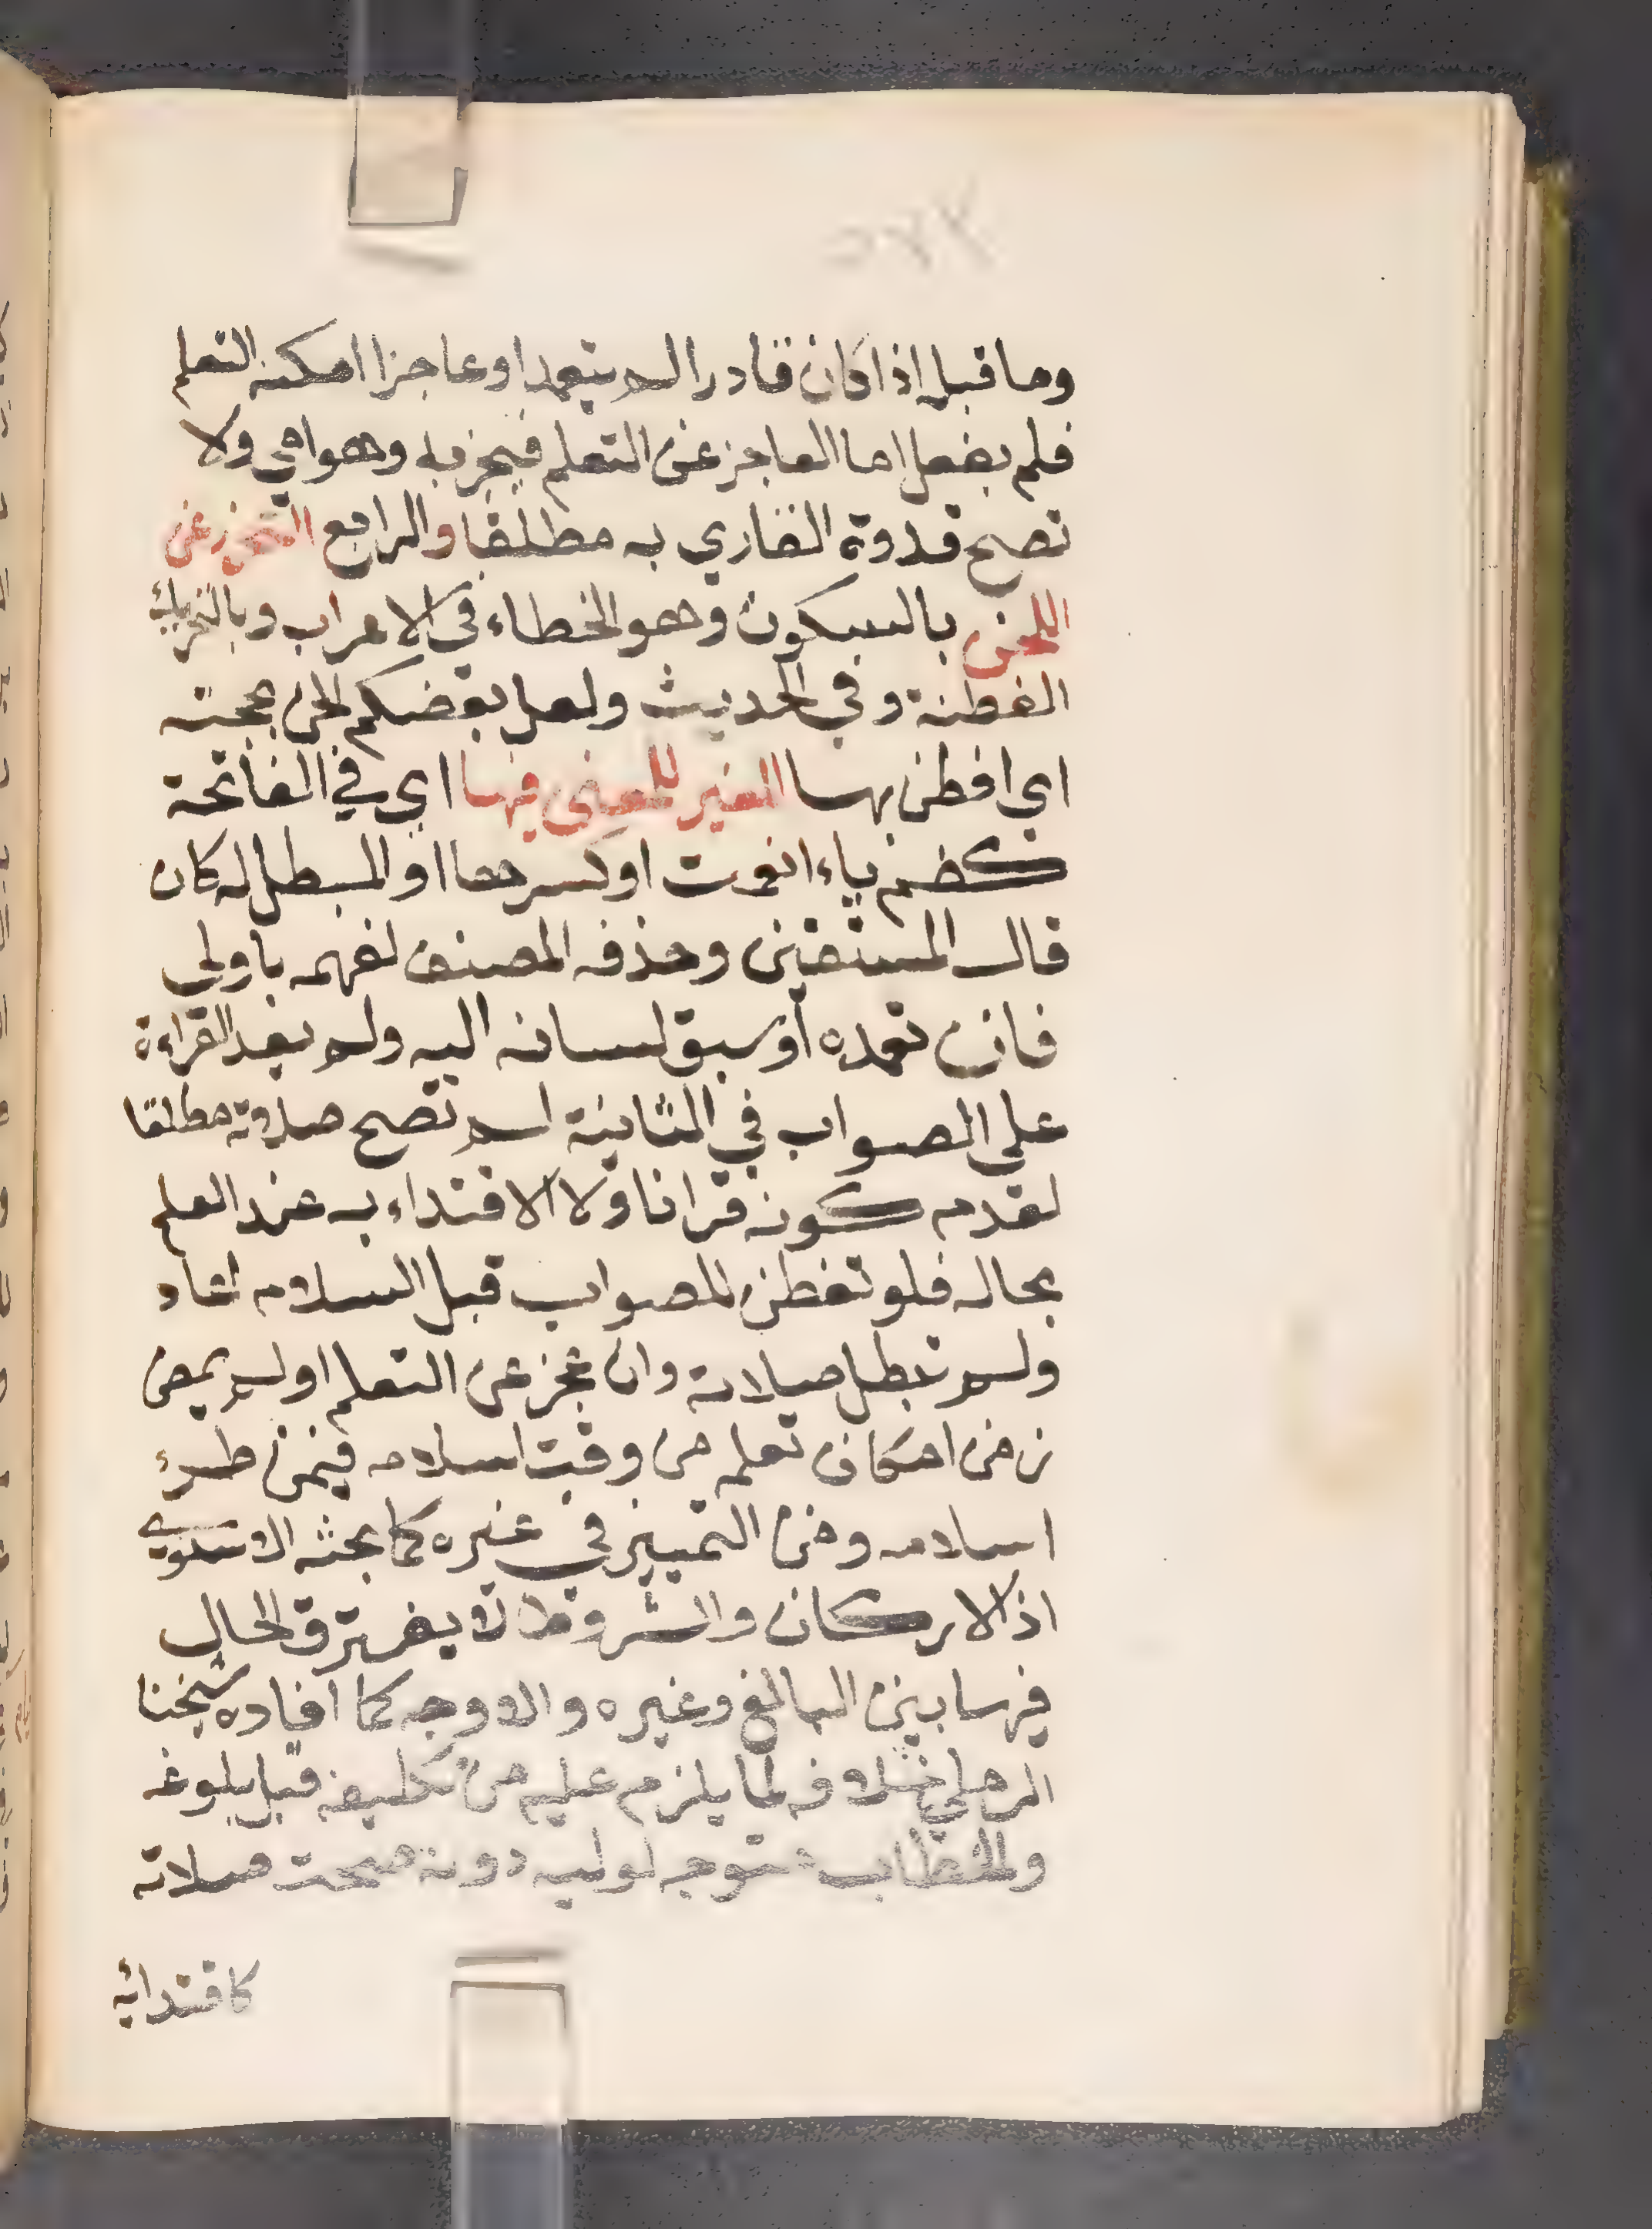 وما قبله اذا كان قادرا لم يتعمد او عاجزا امكنه التعلم
فلم يفعل اما العاجز عن التعلم فيجزيه وهو امي ولا
تصح قدوة القاري به مطلقا والرابع التحرز عن
اللحن بالسكون وهو الخطاء في الاعراب وبالتحريك
الفطنة وفي الحديث ولعل بعضكم الحن بحجته
اي افطن بها المغير للمعنى فيها اي في الفاتحة
كضم تاء انعمت او كسرها او المبطل له كان
قال المستقين وحذفه المصنف لفهمه باولى
فان تعمده او سبق لسانه اليه ولم يعد القراءة
على الصواب في الثانية لم تصح صلاته مطلقا
لعدم كونه قرانا ولا الاقتداء به عند العلم
بحاله فلو تفطن للصواب قبل السلام اعاد
ولم تبطل صلاته وان عجز عن التعلم او لم يمض
زمن امكان تعلم من وقت اسلامه فيمن طرء
اسلامه ومن التمييز في غيره كما بحثه الاسنوي
اذ الاركان والشروط لا يفترق الحال
فيها بين البالغ وغيره والاوجه كما افاده شيخنا
الرملي خلافه لما يلزم عليه من تكليفه قبل بلوغه
والخطاب متوجه لوليه دونه صحت صلاته
كاقتدائه